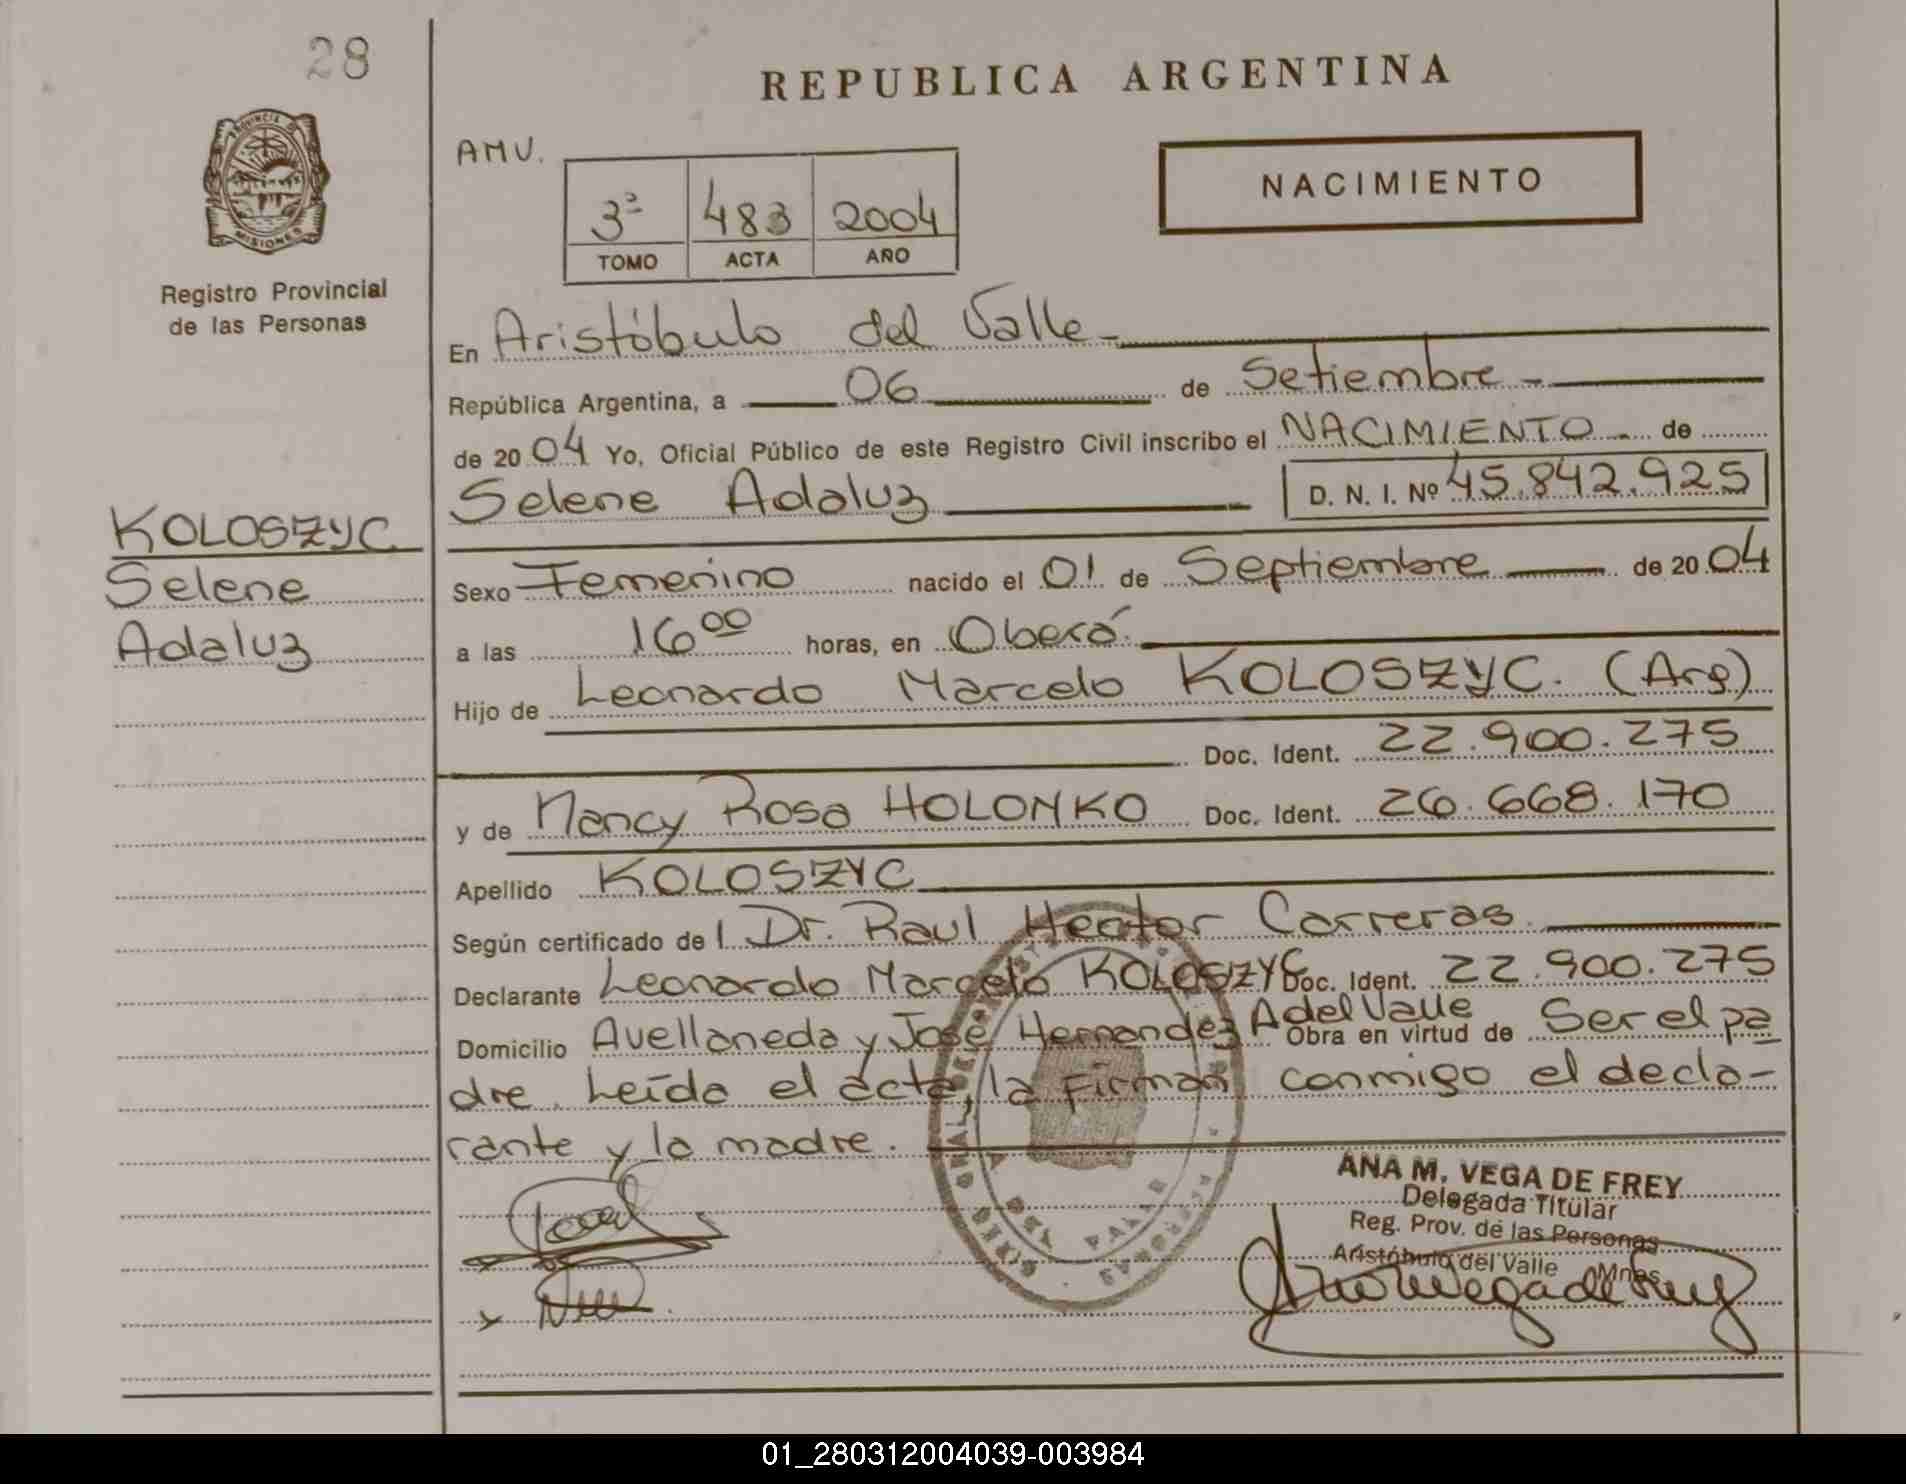 28
PROVINCIA DE
MISIONES
Registro Provincial
de las Personas
KOLOSZYC
Selene
Adaluz
REPUBLICA ARGENTINA
AMV.
NACIMIENTO
3º 483 2004
TOMO ACTA AÑO
En Aristóbulo del Valle
República Argentina, a 06 de Setiembre
de 2004 Yo, Oficial Público de este Registro Civil inscribo el NACIMIENTO de
Selene Adaluz D. N. I. Nº 45.842.925
Sexo Femenino nacido el 01 de Septiembre de 2004
a las 16 00 horas, en Oberá.
Hijo de Leonardo Marcelo KOLOSZYC. (Arg)
Doc. Ident. 22.900.275
y de Nancy Rosa HOLONKO Doc. Ident. 26.668.170
Apellido KOLOSZYC
Según certificado del Dr. Raul Hector Carreras
Declarante Leonardo Marcelo KOLOSZYC Doc. Ident. 22.900.275
Domicilio Avellaneda y José Hernandez A del Valle Obra en virtud de Ser el pa
dre. Leída el acta, la Firman conmigo el decla-
rante y la madre.
ANA M. VEGA DE FREY
Delegada Titular
Reg. Prov. de las Personas
Aristóbulo del Valle Mnes.
01_280312004039-003984